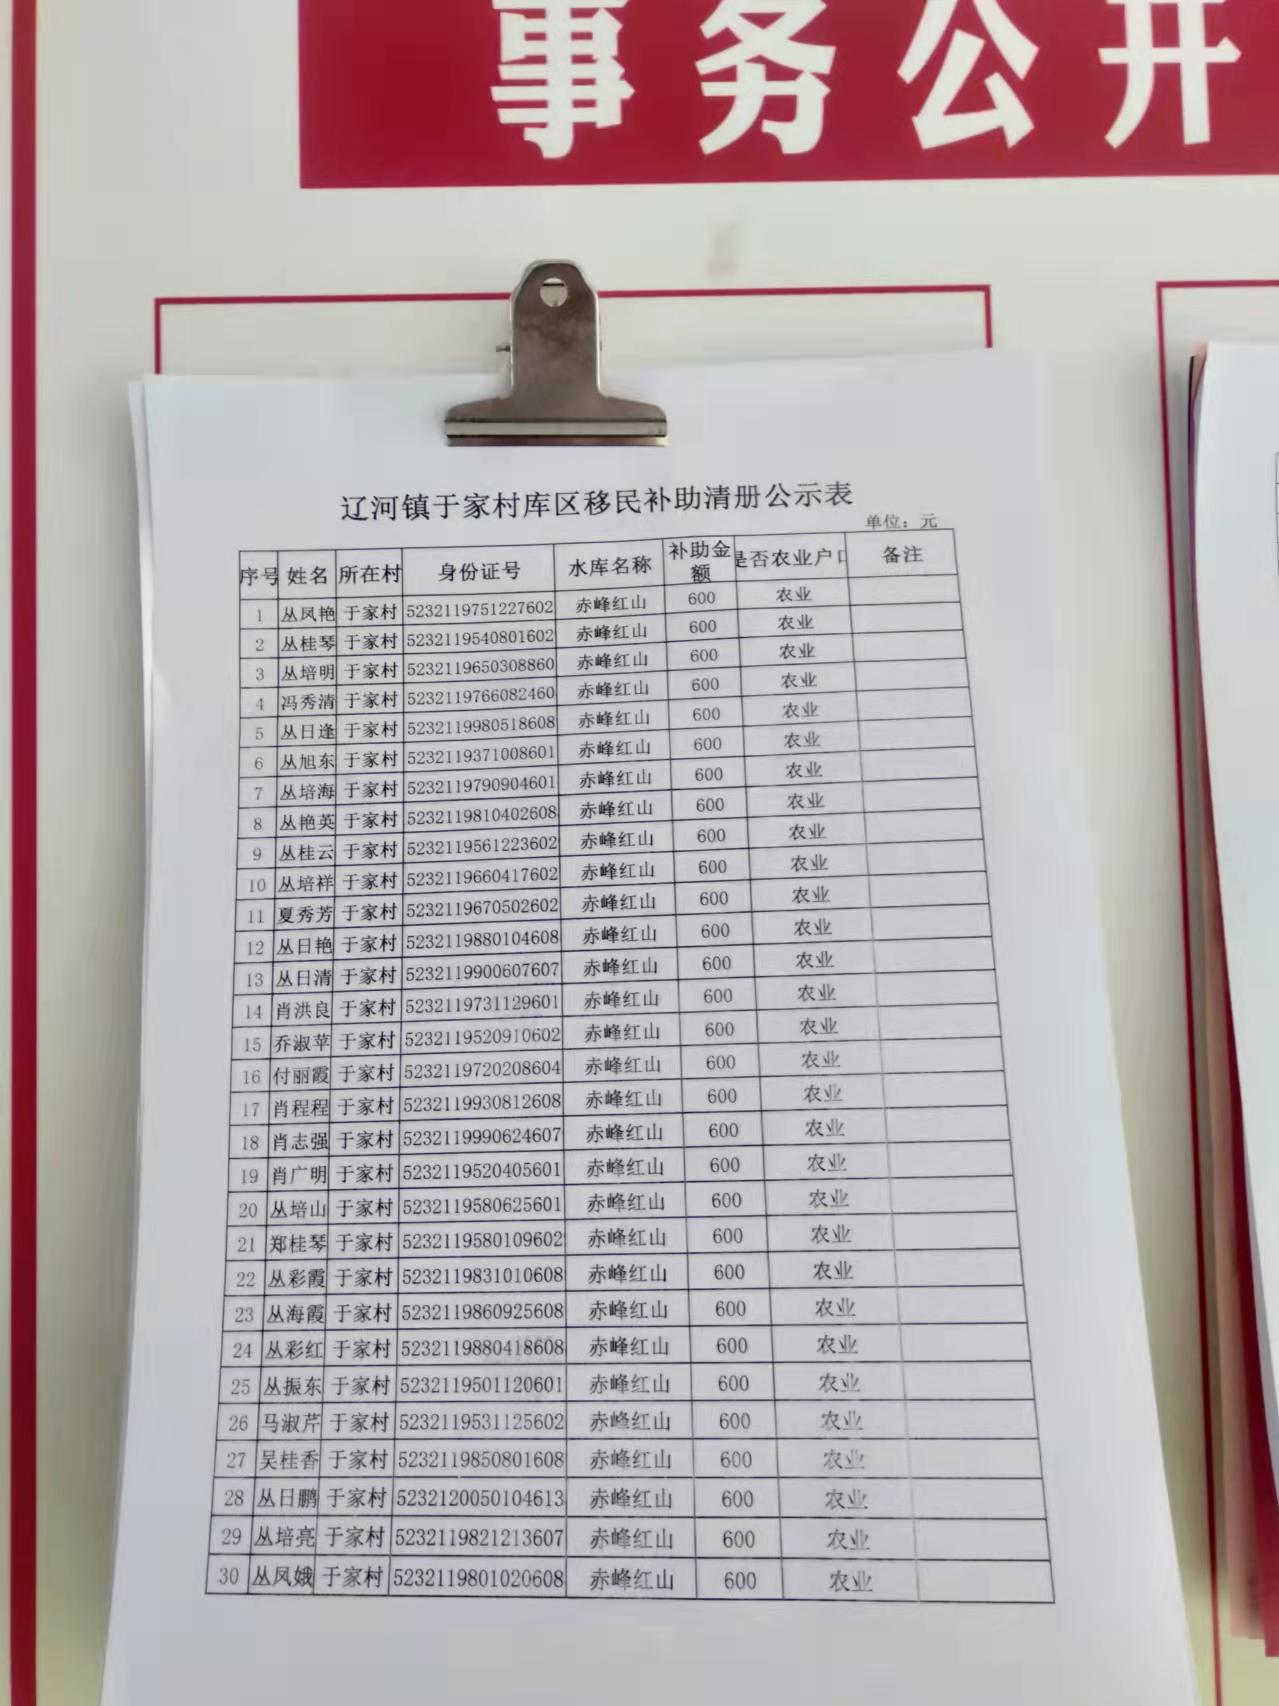 事务公开
辽河镇于家村库区移民补助清册公示表
单位：元
序号 姓名 所在村 身份证号 水库名称 补助金额 是否农业户口 备注
1 丛凤艳 于家村 5232119751227602 赤峰红山 600 农业
2 丛桂琴 于家村 5232119540801602 赤峰红山 600 农业
3 丛培明 于家村 5232119650308860 赤峰红山 600 农业
4 冯秀清 于家村 5232119766082460 赤峰红山 600 农业
5 丛日逢 于家村 5232119980518608 赤峰红山 600 农业
6 丛旭东 于家村 5232119371008601 赤峰红山 600 农业
7 丛培海 于家村 5232119790904601 赤峰红山 600 农业
8 丛艳英 于家村 5232119810402608 赤峰红山 600 农业
9 丛桂云 于家村 5232119561223602 赤峰红山 600 农业
10 丛培祥 于家村 5232119660417602 赤峰红山 600 农业
11 夏秀芳 于家村 5232119670502602 赤峰红山 600 农业
12 丛日艳 于家村 5232119880104608 赤峰红山 600 农业
13 丛日清 于家村 5232119900607607 赤峰红山 600 农业
14 肖洪良 于家村 5232119731129601 赤峰红山 600 农业
15 乔淑苹 于家村 5232119520910602 赤峰红山 600 农业
16 付丽霞 于家村 5232119720208604 赤峰红山 600 农业
17 肖程程 于家村 5232119930812608 赤峰红山 600 农业
18 肖志强 于家村 5232119990624607 赤峰红山 600 农业
19 肖广明 于家村 5232119520405601 赤峰红山 600 农业
20 丛培山 于家村 5232119580625601 赤峰红山 600 农业
21 郑桂琴 于家村 5232119580109602 赤峰红山 600 农业
22 丛彩霞 于家村 5232119831010608 赤峰红山 600 农业
23 丛海霞 于家村 5232119860925608 赤峰红山 600 农业
24 丛彩红 于家村 5232119880418608 赤峰红山 600 农业
25 丛振东 于家村 5232119501120601 赤峰红山 600 农业
26 马淑芹 于家村 5232119531125602 赤峰红山 600 农业
27 吴桂香 于家村 5232119850801608 赤峰红山 600 农业
28 丛日鹏 于家村 5232120050104613 赤峰红山 600 农业
29 丛培亮 于家村 5232119821213607 赤峰红山 600 农业
30 丛凤娥 于家村 5232119801020608 赤峰红山 600 农业